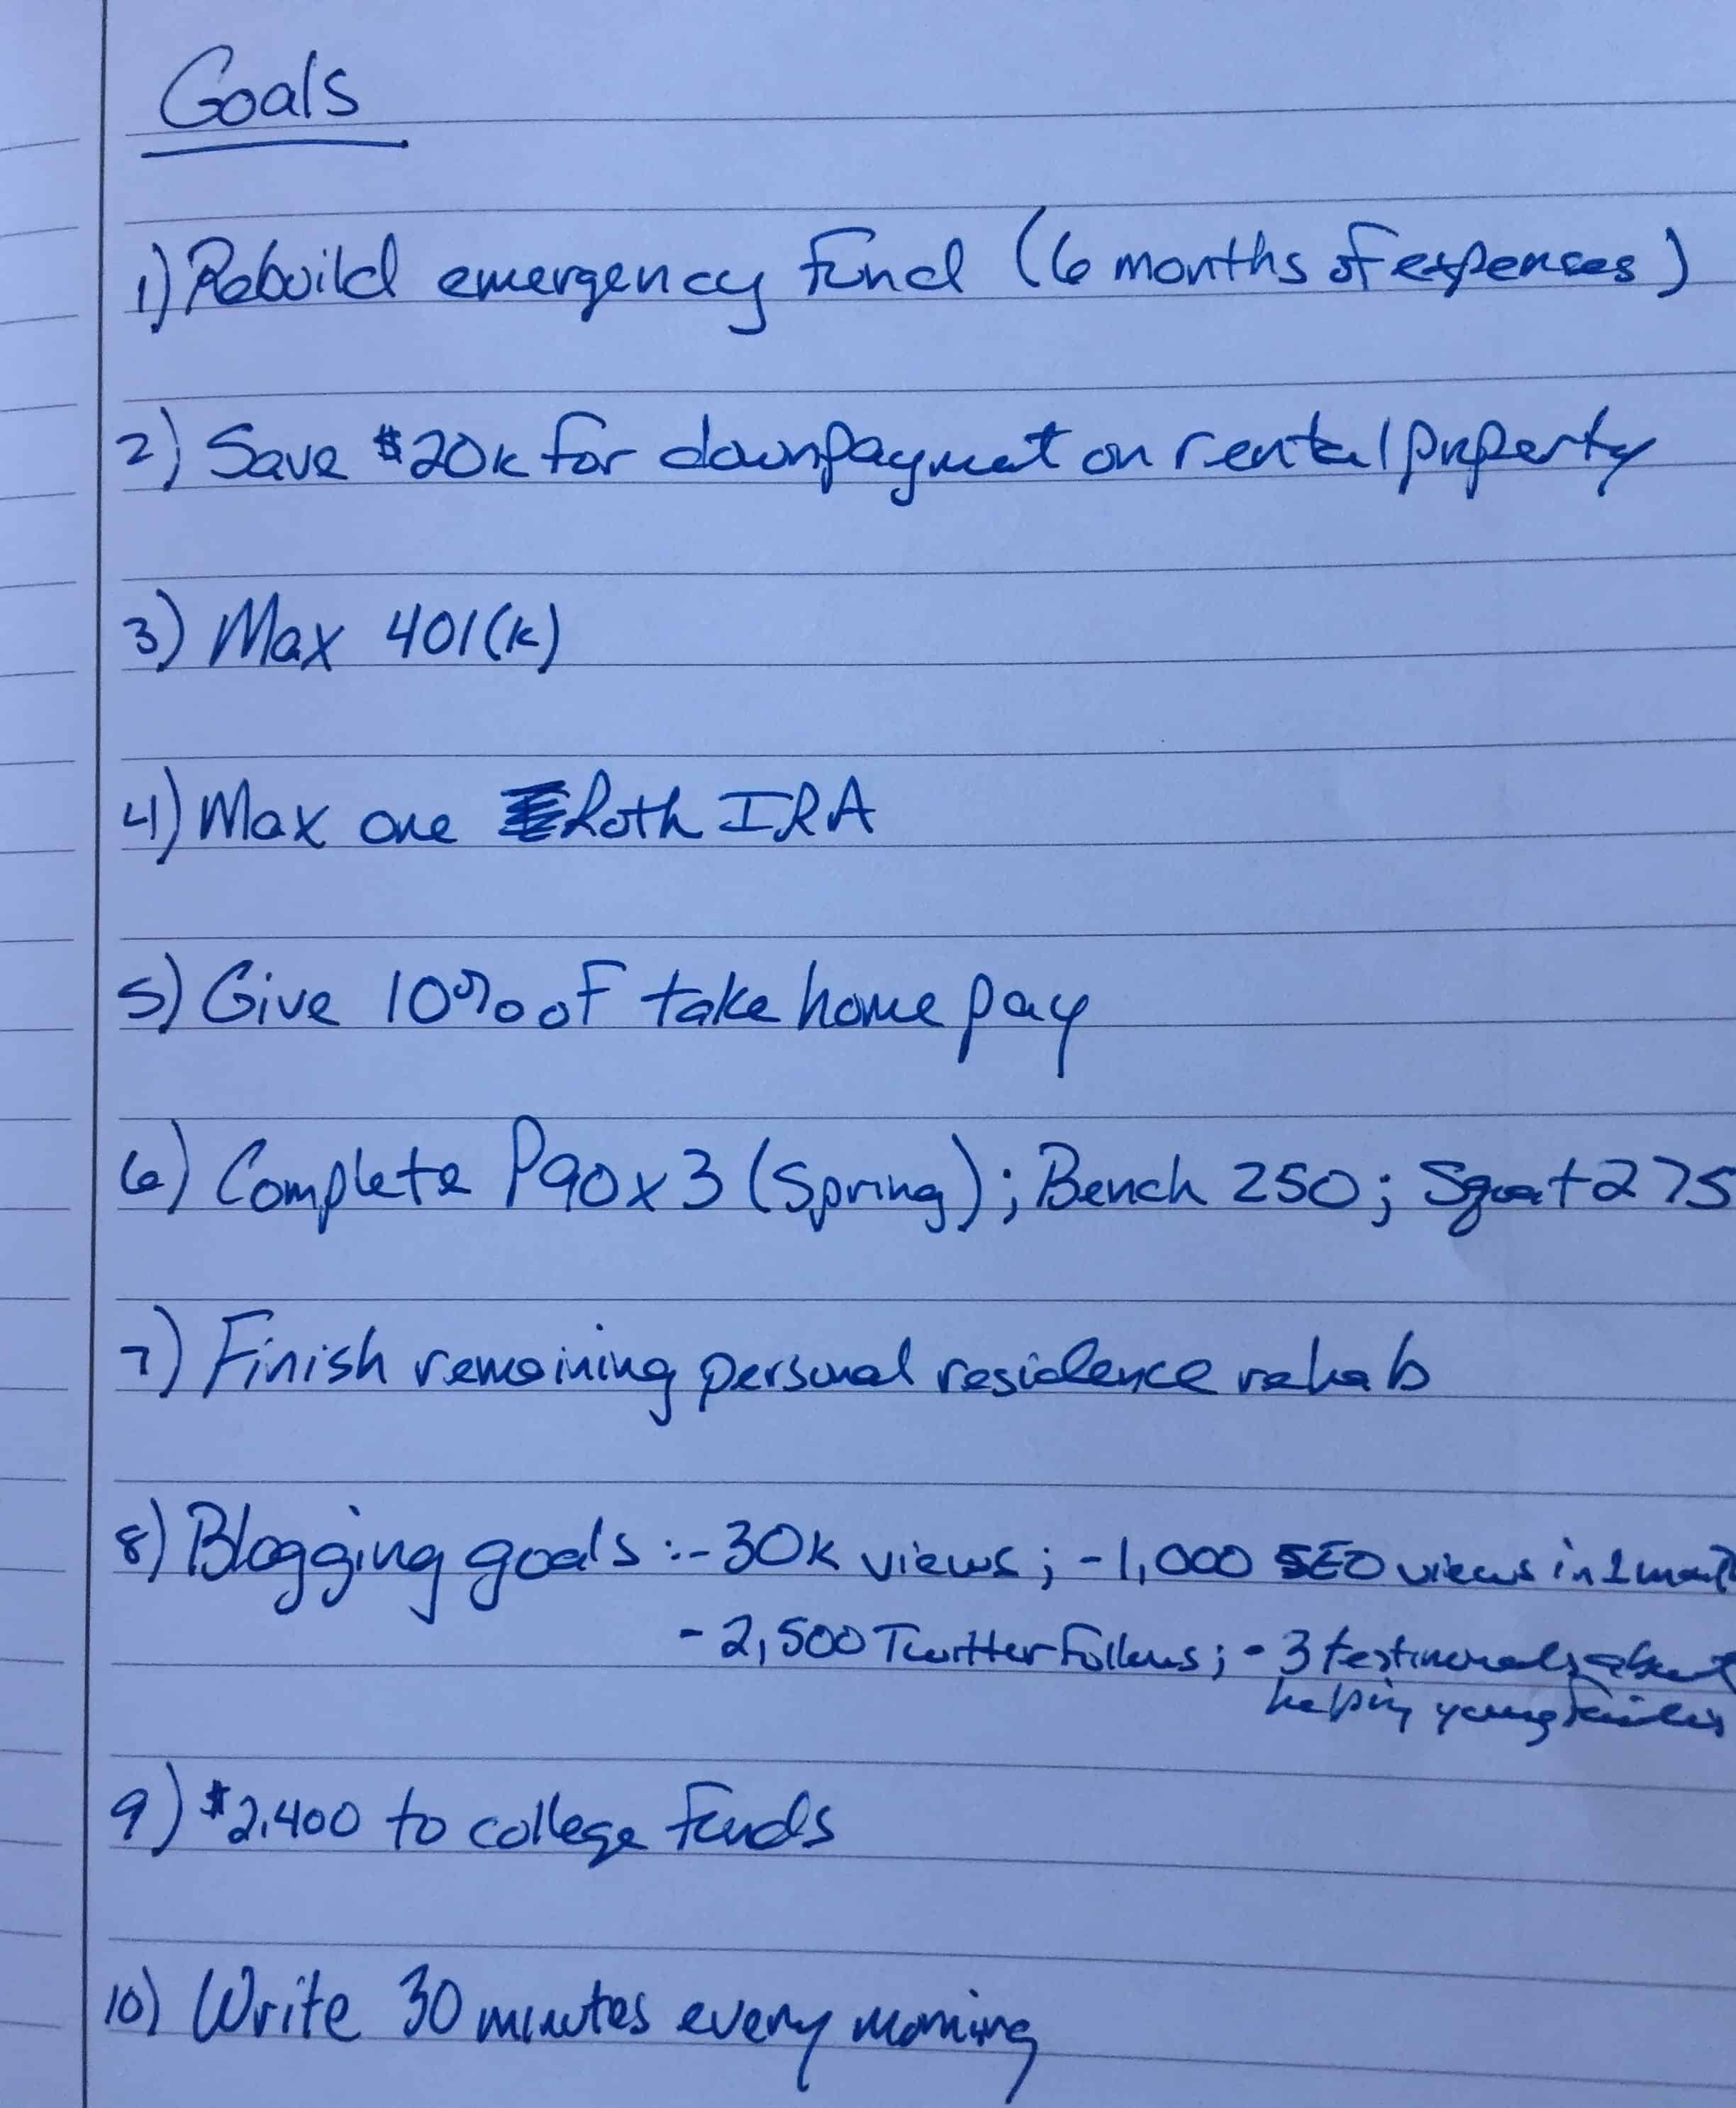 Goals
1) Rebuild emergency fund (6 months of expenses)
2) Save $20k for downpayment on rental property
3) Max 401(k)
4) Max one Roth IRA
5) Give 10% of take home pay
6) Complete P90x3 (Spring); Bench 250; Squat 275
7) Finish remaining personal residence rehab
8) Blogging goals :- 30k views; - 1,000 SEO views in 1
- 2,500 Twitter Follows; - 3 testimonials about
helping young families
9) $2,400 to college funds
10) Write 30 minutes every morning